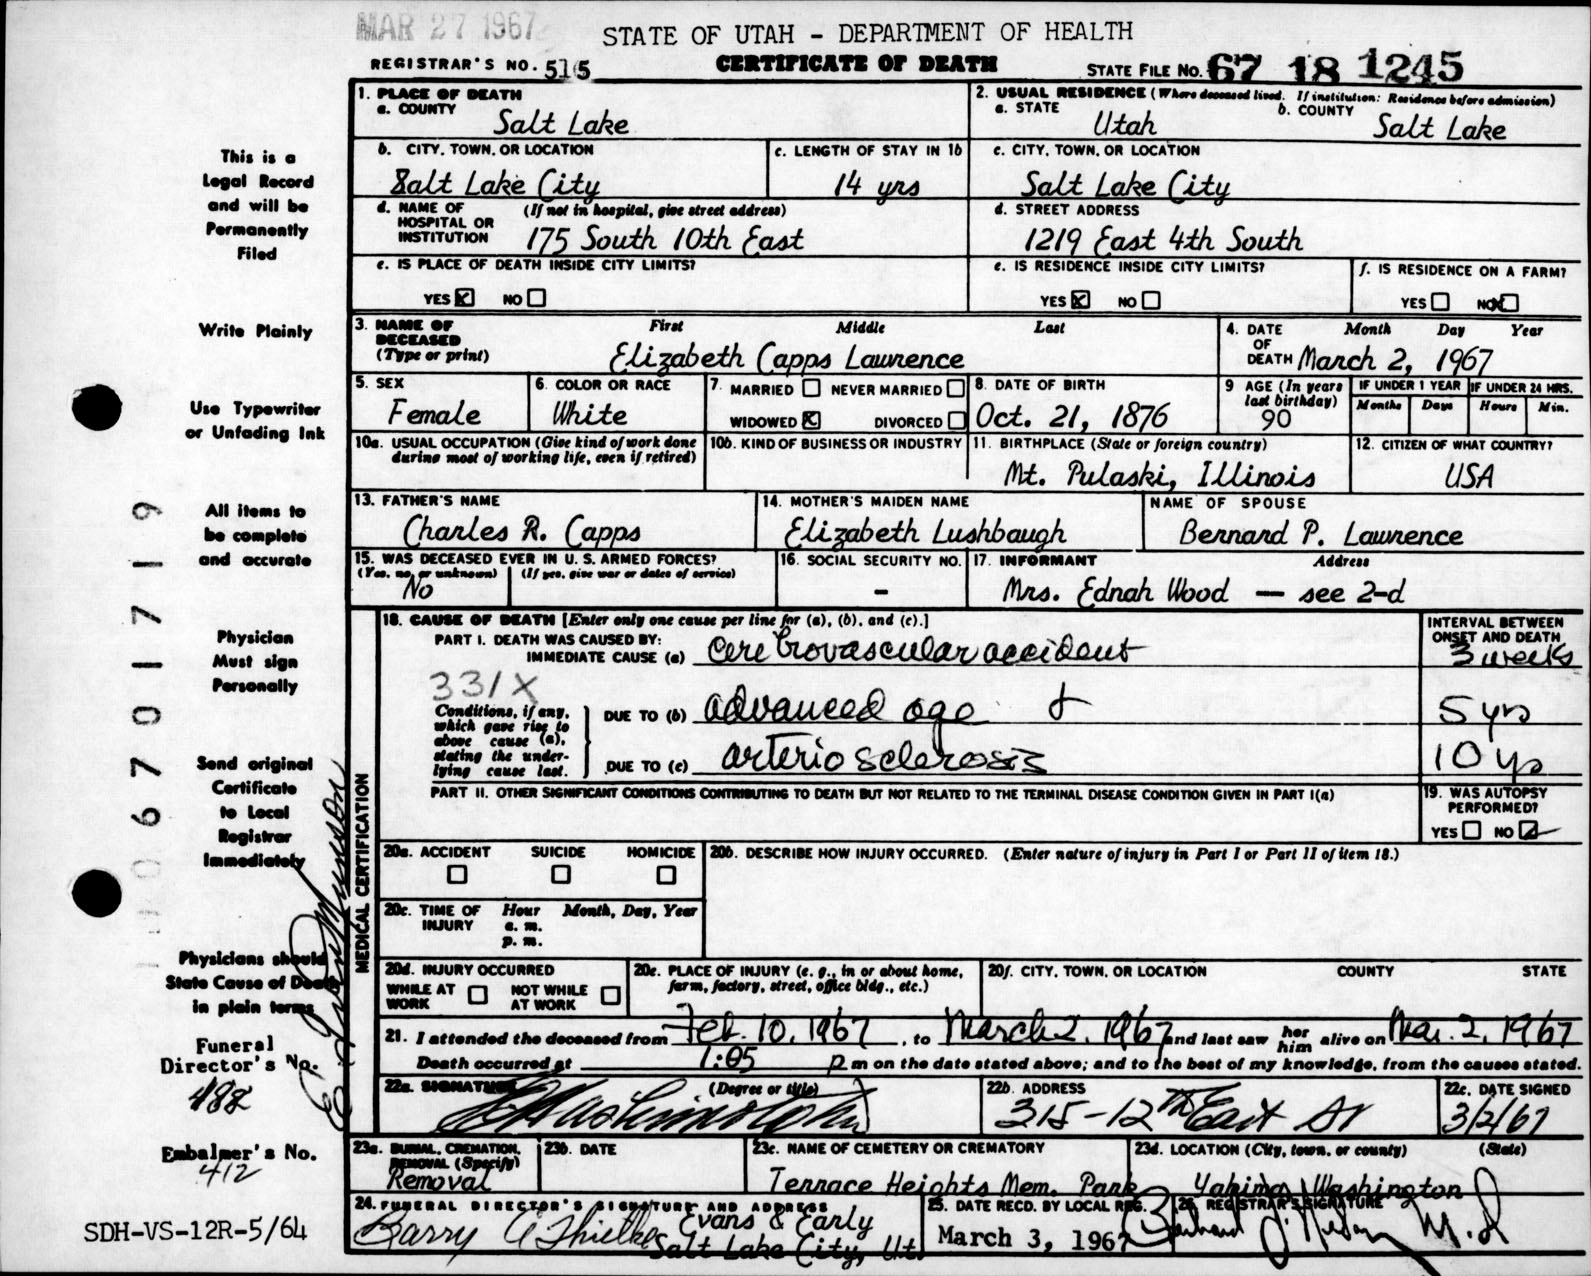 MAR 27 1967
STATE OF UTAH - DEPARTMENT OF HEALTH
REGISTRAR'S NO. 515
CERTIFICATE OF DEATH
STATE FILE NO. 67 18 1245
1. PLACE OF DEATH
a. COUNTY
Salt Lake
2. USUAL RESIDENCE (Where deceased lived. If institution: Residence before admission)
a. STATE
Utah
b. COUNTY
Salt Lake
b. CITY, TOWN, OR LOCATION
Salt Lake City
c. LENGTH OF STAY IN 1b
14 yrs
c. CITY, TOWN, OR LOCATION
Salt Lake City
d. NAME OF HOSPITAL OR INSTITUTION
(If not in hospital, give street address)
175 South 10th East
d. STREET ADDRESS
1219 East 4th South
e. IS PLACE OF DEATH INSIDE CITY LIMITS?
YES NO
e. IS RESIDENCE INSIDE CITY LIMITS?
YES NO
f. IS RESIDENCE ON A FARM?
YES NO
3. NAME OF DECEASED (Type or print)
First Middle Last
Elizabeth Capps Lawrence
4. DATE OF DEATH
Month Day Year
March 2, 1967
5. SEX
Female
6. COLOR OR RACE
White
7. MARRIED NEVER MARRIED
WIDOWED DIVORCED
8. DATE OF BIRTH
Oct. 21, 1876
9 AGE (In years last birthday)
90
IF UNDER 1 YEAR
Months Days
IF UNDER 24 HRS.
Hours Min.
10a. USUAL OCCUPATION (Give kind of work done during most of working life, even if retired)
10b. KIND OF BUSINESS OR INDUSTRY
11. BIRTHPLACE (State or foreign country)
Mt. Pulaski, Illinois
12. CITIZEN OF WHAT COUNTRY?
USA
13. FATHER'S NAME
Charles R. Capps
14. MOTHER'S MAIDEN NAME
Elizabeth Lushbaugh
NAME OF SPOUSE
Bernard P. Lawrence
15. WAS DECEASED EVER IN U. S. ARMED FORCES?
(Yes, no, or unknown) (If yes, give war or dates of service)
No
16. SOCIAL SECURITY NO.
-
17. INFORMANT Address
Mrs. Ednah Wood — see 2-d
MEDICAL CERTIFICATION
18. CAUSE OF DEATH [Enter only one cause per line for (a), (b), and (c).]
PART I. DEATH WAS CAUSED BY:
IMMEDIATE CAUSE (a) cerebrovascular accident
INTERVAL BETWEEN ONSET AND DEATH
3 weeks
331X
Conditions, if any, which gave rise to above cause (a), stating the underlying cause last.
DUE TO (b) advanced age &
5 yrs
DUE TO (c) arteriosclerosis
10 yrs
PART II. OTHER SIGNIFICANT CONDITIONS CONTRIBUTING TO DEATH BUT NOT RELATED TO THE TERMINAL DISEASE CONDITION GIVEN IN PART I(a)
19. WAS AUTOPSY PERFORMED?
YES NO
20a. ACCIDENT SUICIDE HOMICIDE
20b. DESCRIBE HOW INJURY OCCURRED. (Enter nature of injury in Part I or Part II of item 18.)
20c. TIME OF INJURY
Hour Month, Day, Year
a. m.
p. m.
20d. INJURY OCCURRED
WHILE AT WORK NOT WHILE AT WORK
20e. PLACE OF INJURY (e. g., in or about home, farm, factory, street, office bldg., etc.)
20f. CITY, TOWN, OR LOCATION COUNTY STATE
21. I attended the deceased from Feb. 10, 1967, to March 2, 1967 and last saw her him alive on Mar. 2, 1967
Death occurred at 1:05 p m on the date stated above; and to the best of my knowledge, from the causes stated.
22a. SIGNATURE (Degree or title)
22b. ADDRESS
315-12th East
22c. DATE SIGNED
3/2/67
23a. BURIAL, CREMATION, REMOVAL (Specify)
Removal
23b. DATE
23c. NAME OF CEMETERY OR CREMATORY
Terrace Heights Mem. Park
23d. LOCATION (City, town, or county) (State)
Yakima, Washington
24. FUNERAL DIRECTOR'S SIGNATURE AND ADDRESS
Barry Thielke
Evans & Early
Salt Lake City, Ut.
25. DATE RECD. BY LOCAL REG.
March 3, 1967
26 REGISTRAR'S SIGNATURE
M.D
This is a
Legal Record
and will be
Permanently
Filed
Write Plainly
Use Typewriter
or Unfading Ink
All items to
be complete
and accurate
Physician
Must sign
Personally
Send original
Certificate
to Local
Registrar
Immediately
Physicians should
State Cause of Death
in plain terms
Funeral
Director's No.
482
Embalmer's No.
412
SDH-VS-12R-5/64
06701719